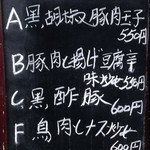 A黒胡椒豚肉玉子
550円
B豚肉と揚げ豆腐辛
味炒め550円
C黒酢豚
600円
F鳥肉とナス炒め
600円